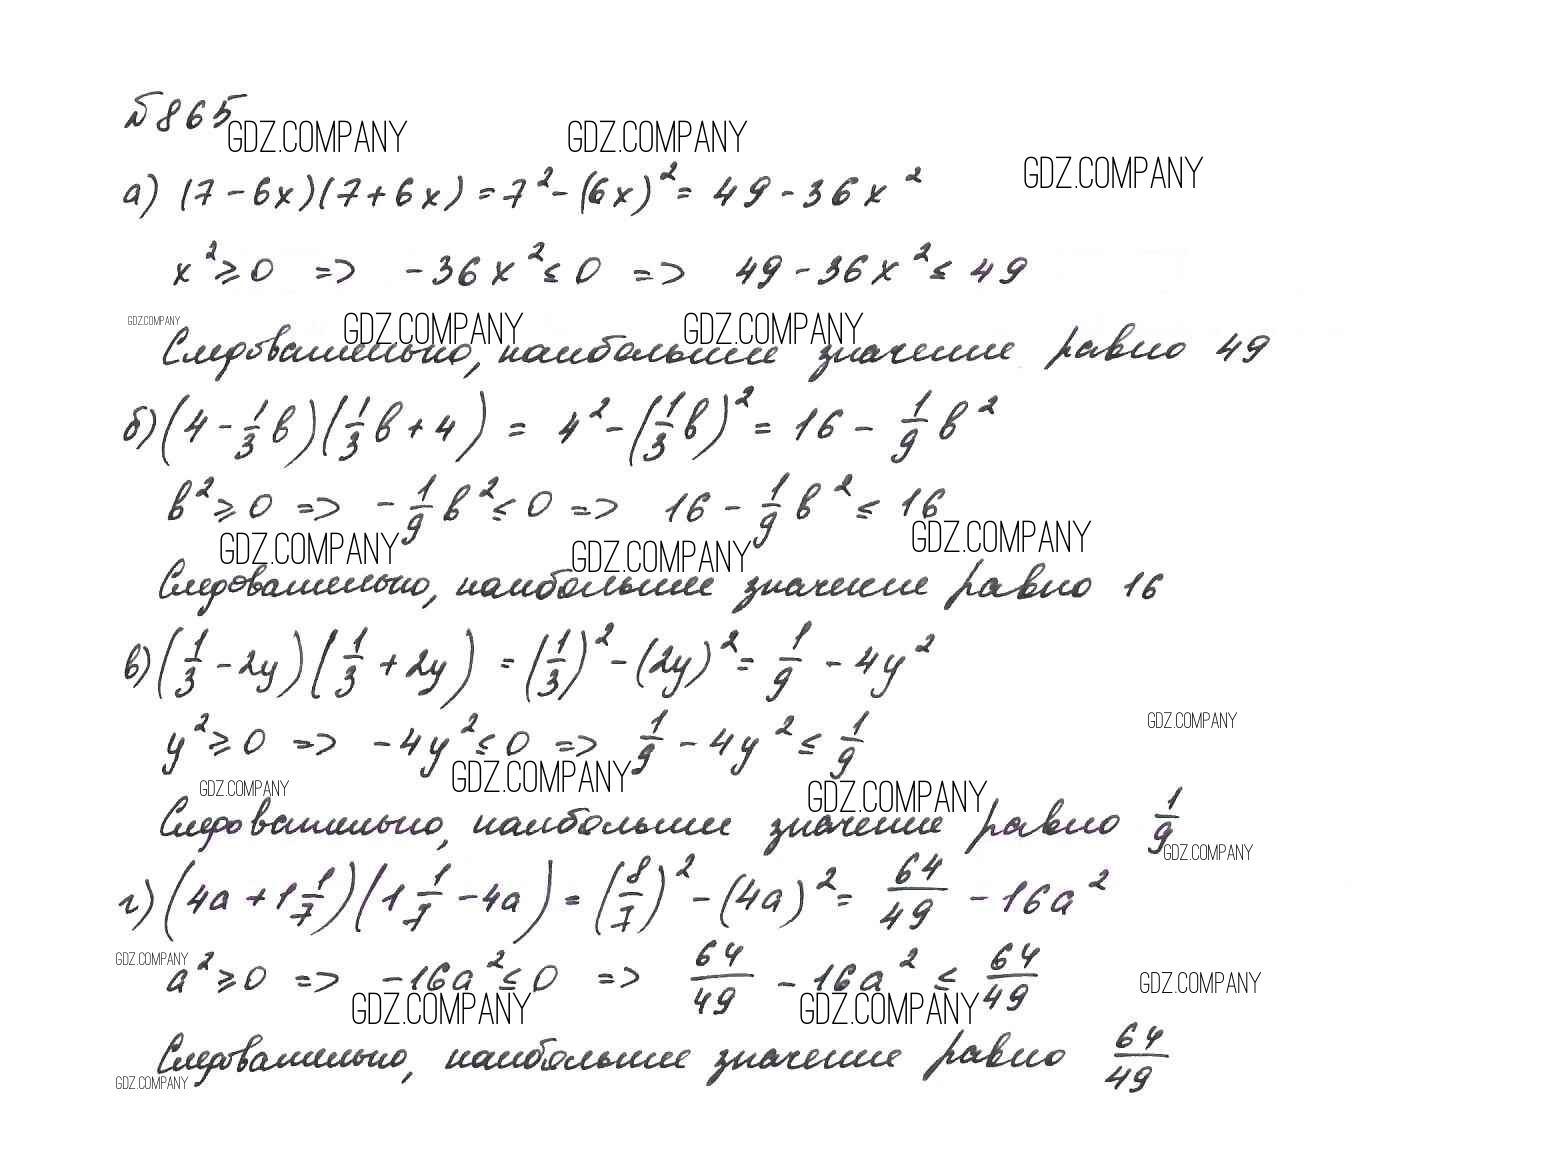 №865
GDZ.COMPANY GDZ.COMPANY GDZ.COMPANY
а) (7-6x)(7+6x) = 7² - (6x)² = 49 - 36x²
x² ⩾ 0 => -36x² ≤ 0 => 49 - 36x² ≤ 49
GDZ.COMPANY GDZ.COMPANY GDZ.COMPANY
Следовательно, наибольшее значение равно 49
б) (4 - 1/3 b)(1/3 b + 4) = 4² - (1/3 b)² = 16 - 1/9 b²
b² ⩾ 0 => -1/9 b² ≤ 0 => 16 - 1/9 b² ≤ 16
GDZ.COMPANY GDZ.COMPANY GDZ.COMPANY
Следовательно, наибольшее значение равно 16
в) (1/3 - 2y)(1/3 + 2y) = (1/3)² - (2y)² = 1/9 - 4y²
GDZ.COMPANY
y² ⩾ 0 => -4y² ≤ 0 => 1/9 - 4y² ≤ 1/9
GDZ.COMPANY GDZ.COMPANY GDZ.COMPANY
Следовательно, наибольшее значение равно 1/9
GDZ.COMPANY
г) (4a + 1 1/7)(1 1/7 - 4a) = (8/7)² - (4a)² = 64/49 - 16a²
GDZ.COMPANY
a² ⩾ 0 => -16a² ≤ 0 => 64/49 - 16a² ≤ 64/49
GDZ.COMPANY GDZ.COMPANY GDZ.COMPANY
Следовательно, наибольшее значение равно 64/49
GDZ.COMPANY